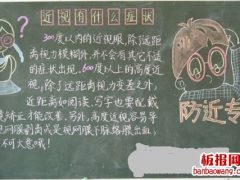 近视有什么症状
?
300度以内的近视眼,除了远距
离视力模糊外,并不会有其它不适
的症状出现。600度以上的高度近
视,除了远距离视力变差外,
近距离如阅读、写字也要配戴
眼镜矫正才能改善。另外,高度近视容易导
视网膜剥离或是视网膜下脉络膜出血,
不可大意哦!
防近专
板报网
www.banbaowang.com